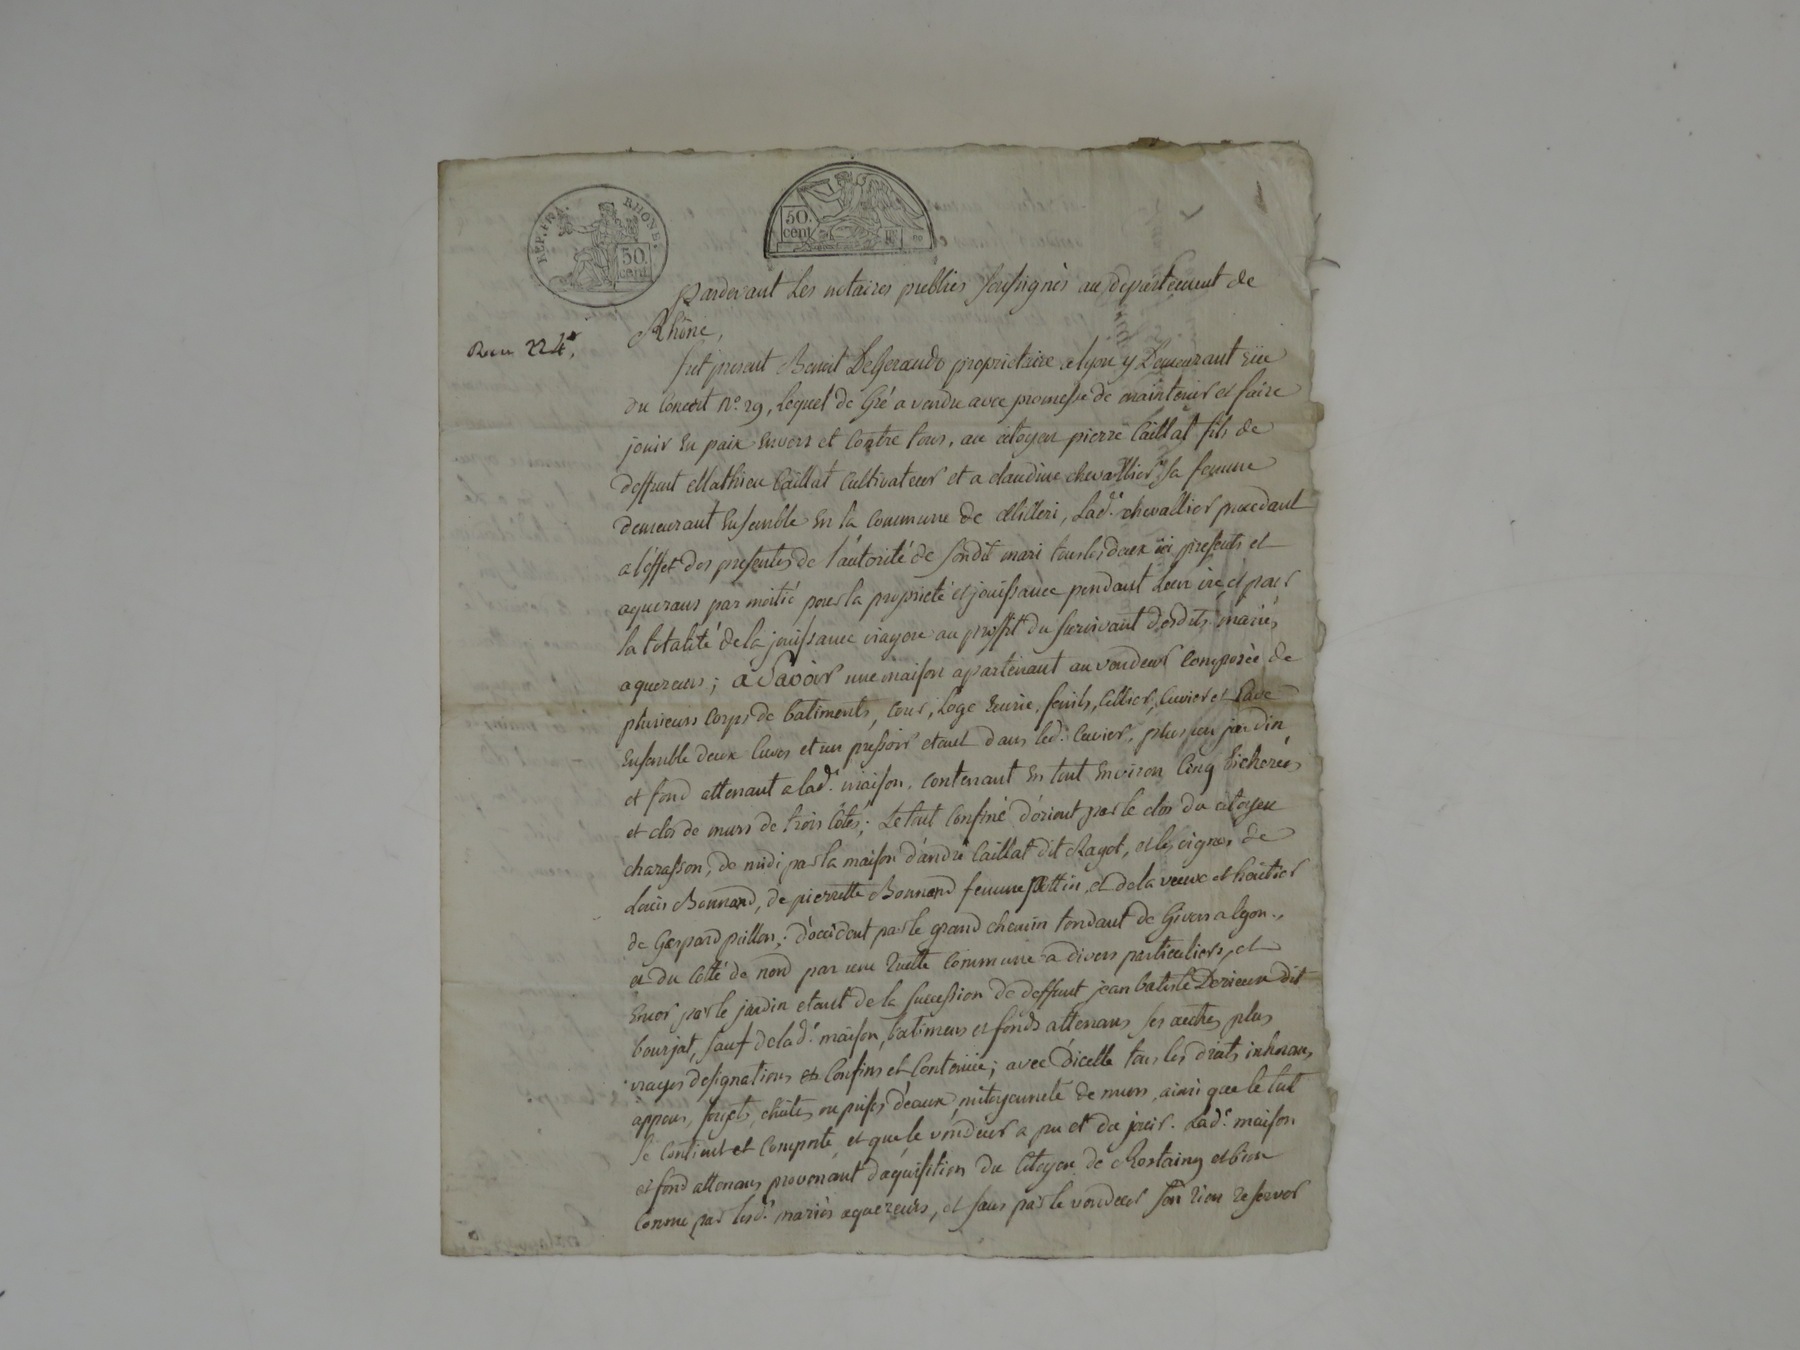 REP. FRA. RHONE.
50 cent
50. cent
pardevant Les notaires publics soussignés au département de
Rhône,
fut present Benoit DeGerando propriétaire a lyon y Demeurant rüe
du Concert n.º 29, Lequel de Gré a vendu avec promesse de maintenir et faire
jouir En paix Envers et Contre tous, au citoyen pierre Caillat fils de
deffunt Mathieu Caillat Cultivateur et a claudine chevallier sa femme
demeurant Ensemble En la Commune de Milleri, Lad.e chevallier procedant
a l'effet des presentes de l'autorité de sondit mari tous les deux ici presents et
aquereurs par moitié pour la proprieté et jouissance pendant Leur vie et pour
la totalité de la jouissance viagere au proffit du survivant desdits mariés
aquereurs; a Savoir une maison apartenant au vendeur Composée de
plusieurs Corps de batiments, Cour, Loge Ecurie, fenils, Cellier, Cuvier et Cave
Ensemble deux Cuves et un pressoir etant dans led. Cuvier, plus un jardin
et fond attenant a lad.e maison, Contenant En tout Environ Cinq bicherées
et clos de murs de trois Cotés; Le tout Confiné d'orient par le clos du citoyen
charasson, de midi par la maison d'andré Caillat dit Ragot, et les vignes de
Louis Bonnard, de pierrette Bonnard femme, et de la veuve et héritier
de Gaspard; d'occident par le grand chemin tendant de Givors a lyon.,
et du Cotté de nord par une Ruelle Commune a divers particuliers, et
Encor par le jardin etant de la succession de deffunt jean batiste Derieux dit
bourjat, sauf de lad.e maison, batimens et fonds attenans ses autres plus
vrayes designations et Confins et Contenüe; avec d'icelle tous les droits inherans,
appens, chûtes, ou prises d'eaux, mitoyenneté de murs, ainsi que le tout
se Contient et Comporte, et que le vendeur a pu et du jouir. Lad.e maison
et fond attenans provenant d'aquisition du Citoyen de Rostaing et bien
Connue par lesd. mariés aquereurs, et sans par le vendeur s'en rien reserver